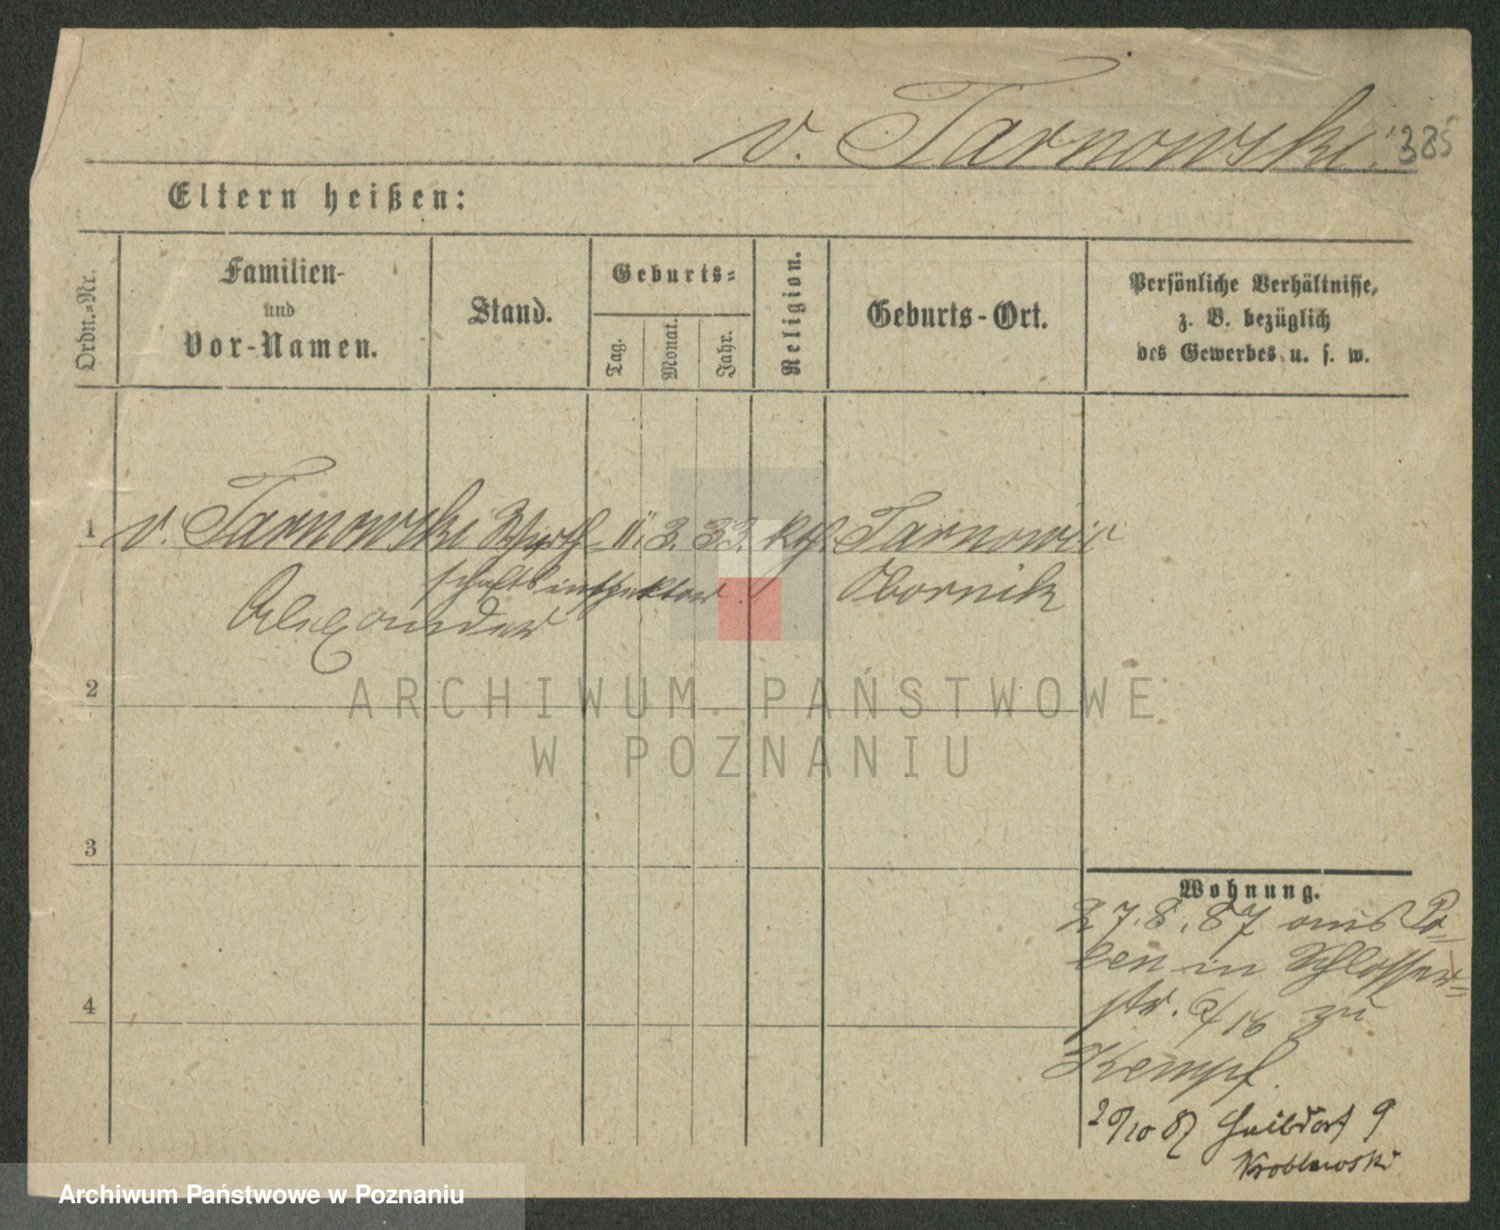 v. Tarnowski. 385
Eltern heißen:
Ordn.-Nr.
Familien-
und
Vor-Namen.
Stand.
Geburts-
Tag.
Monat.
Jahr.
Religion.
Geburts-Ort.
Persönliche Verhältnisse,
z. B. bezüglich
des Gewerbes u. s. w.
1 v. Tarnowski Wirth- 11. 3. 33. kth. Tarnowic
schaftsinspektor. Obornik
Alexander
2
ARCHIWUM PAŃSTWOWE
W POZNANIU
3
Wohnung.
27.8.87 aus Po-
len in Schlosser-
str. 6/16 zu
Kempf.
4
87 9
Wroblewski
Archiwum Państwowe w Poznaniu